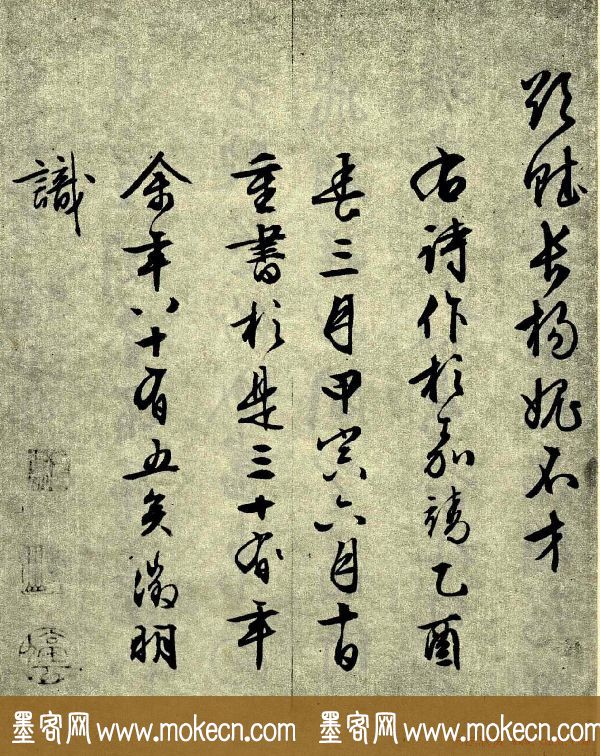 欲賦長楊媿不才
右詩作於嘉靖乙酉
春三月甲寅六月十日
重書於是三十有年
余年八十有五矣徵明
識
墨客网 www.mokecn.com 墨客网 www.mokecn.com